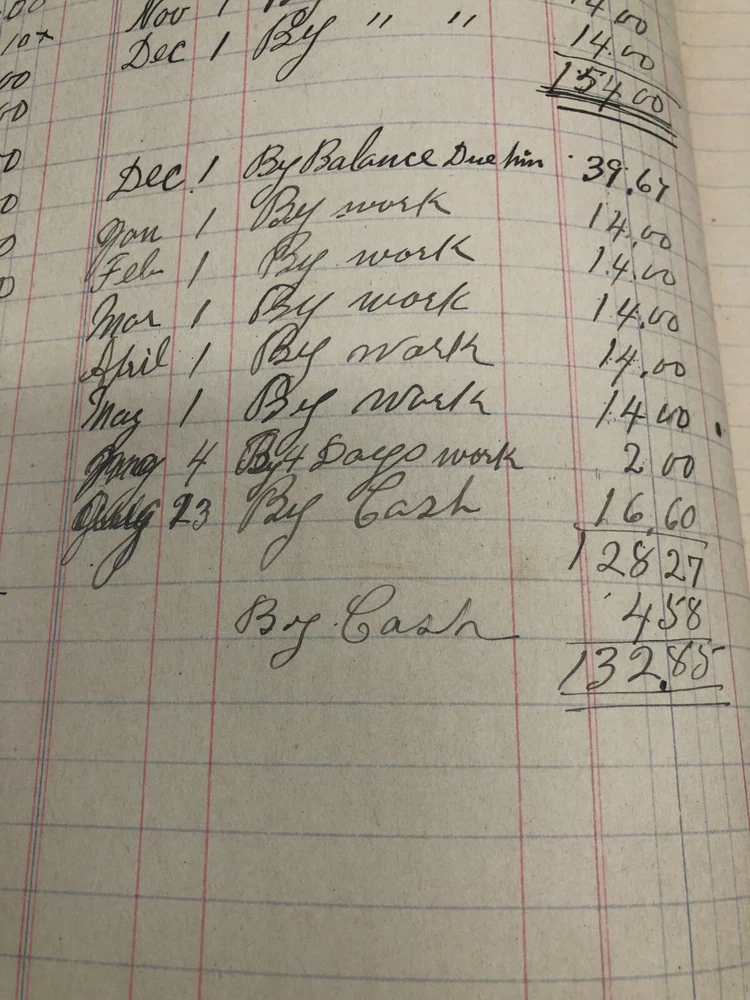 00 Nov 1 By 14.00
10x Dec 1 By " " 14.00
00 154.00
00
00 Dec. 1 By Balance Due him 39.67
0 Jan 1 By work 14.00
0 Feb 1 By work 14.00
0 Mar 1 By work 14.00
April 1 By work 14.00
May 1 By work 14 00
4 By 4 Days work 2 00
23 By Cash 16.60
128 27
By Cash 4 58
132.85